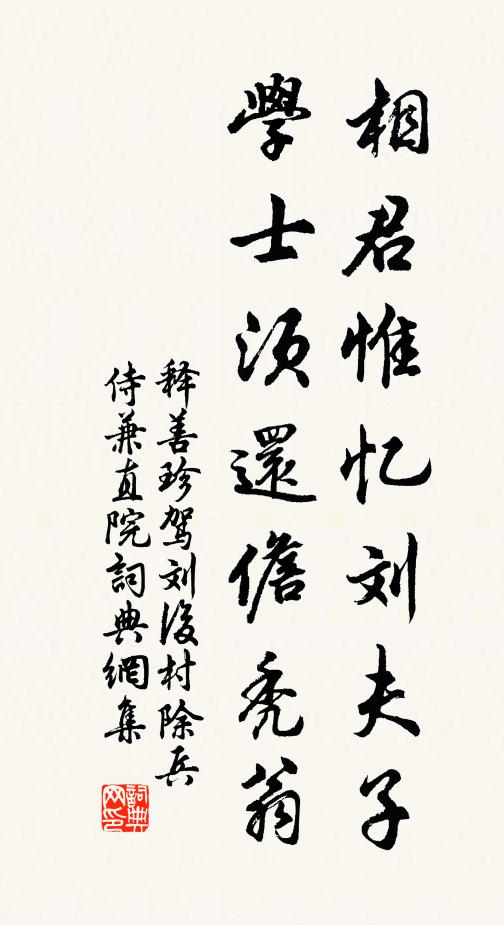 相君惟忆刘夫子
學士須還儋秃翁
释善珍驾刘後村除兵
侍兼直院詞典網集
詞典网印